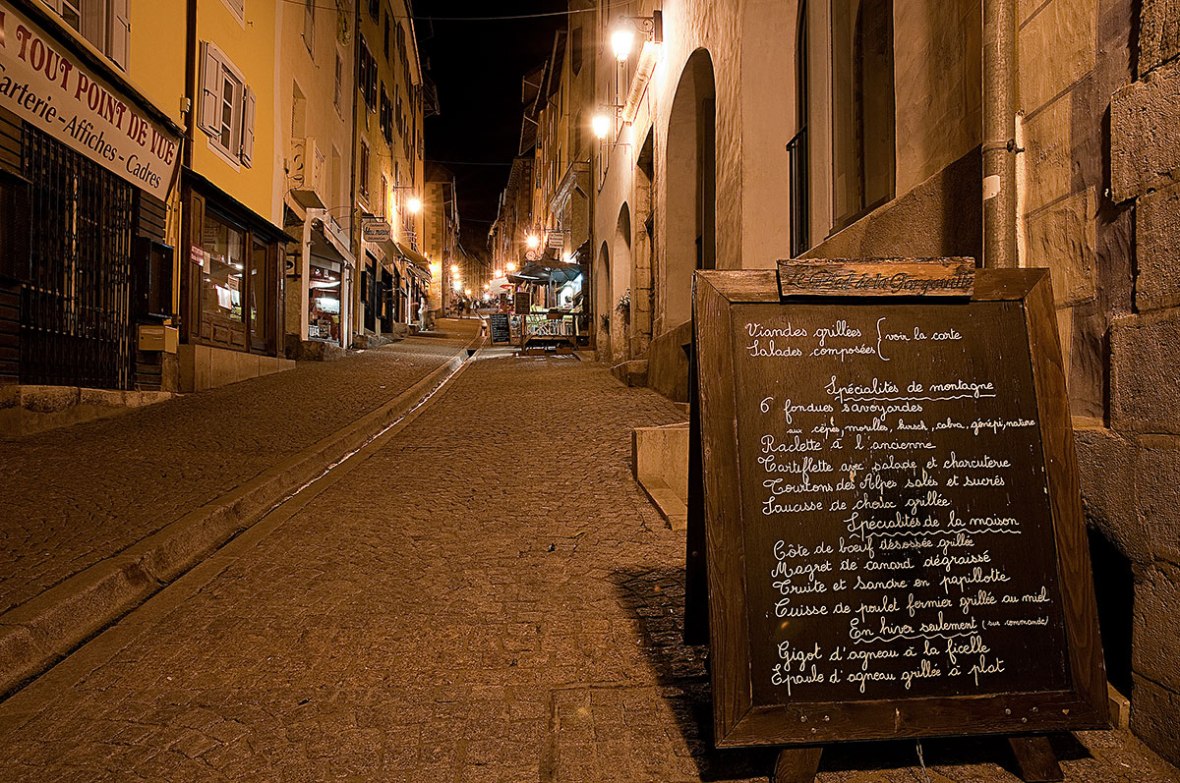 A TOUT POINT DE VUE
Carterie-Affiches-Cadres
de la Gargouille
Viandes grillées { voir la carte
Salades composées
Spécialités de montagne
6 fondues savoyardes
aux cèpes, morilles, kirsch, calva, génépi, nature
Raclette à l'ancienne
Tartiflette avec salade et charcuterie
Tourtons des Alpes salés et sucrés
Saucisse de choux grillée
Spécialités de la maison
Côte de bœuf désossée grillée
Magret de canard dégraissé
Truite et Sandre en papillotte
Cuisse de poulet fermier grillée au miel
En hiver seulement (sur commande)
Gigot d'agneau à la ficelle
Epaule d'agneau grillée à plat